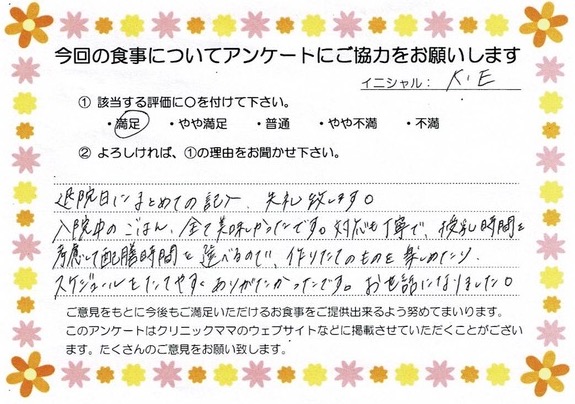 今回の食事についてアンケートにご協力をお願いします
イニシャル: K.E
① 該当する評価に○を付けて下さい。
・満足 ・やや満足 ・普通 ・やや不満 ・不満
② よろしければ、①の理由をお聞かせ下さい。
退院日にまとめての記入、失礼致します。
入院中のごはん、全て美味しかったです。対応も丁寧で、授乳時間を
考慮して配膳時間を選べるので、作りたてのものを楽しめたり、
スケジュールをたてやすくありがたかったです。お世話になりました。
ご意見をもとに今後もご満足いただけるお食事をご提供出来るよう努めてまいります。
このアンケートはクリニックママのウェブサイトなどに掲載させていただくことがござい
ます。たくさんのご意見をお願い致します。